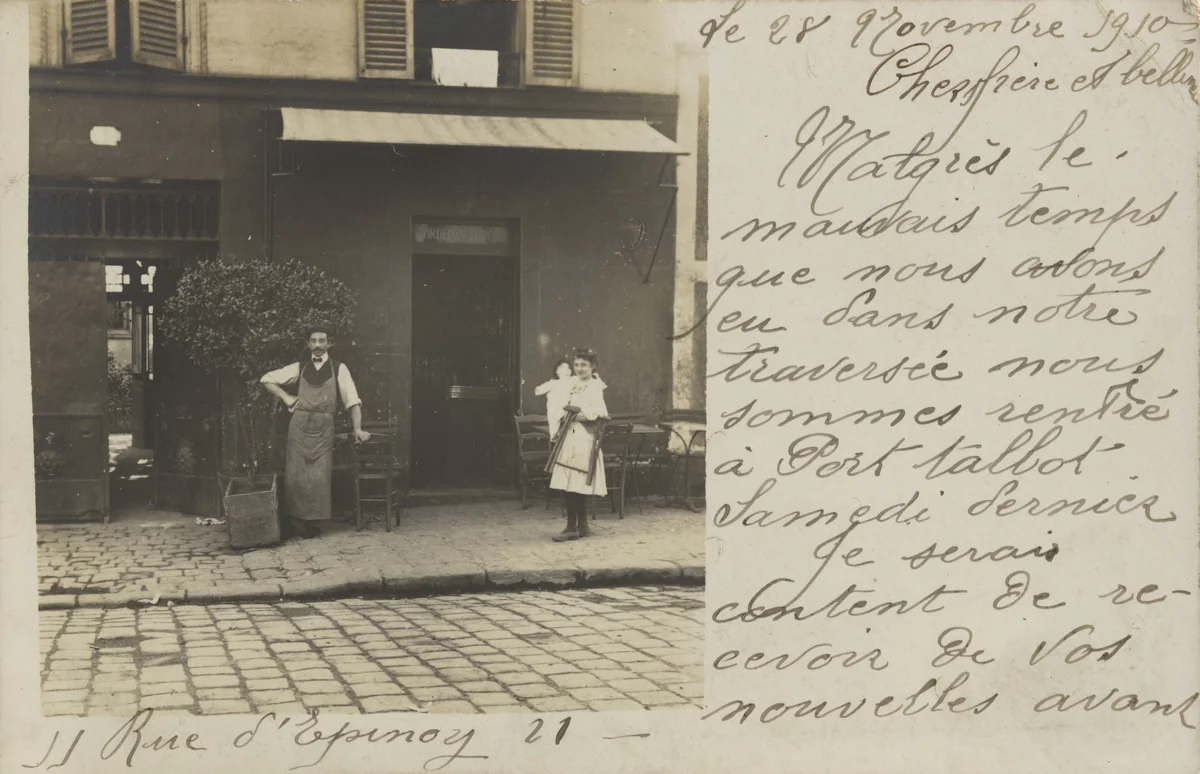 Le 28 Novembre 1910
Cher frère et belle
Malgrès le
mauvais temps
que nous avons
eu dans notre
traversée nous
sommes rentré
à Port talbot
Samedi dernier
Je serais
content de re-
cevoir de vos
nouvelles avant
11 Rue d'Epinoy 21 —